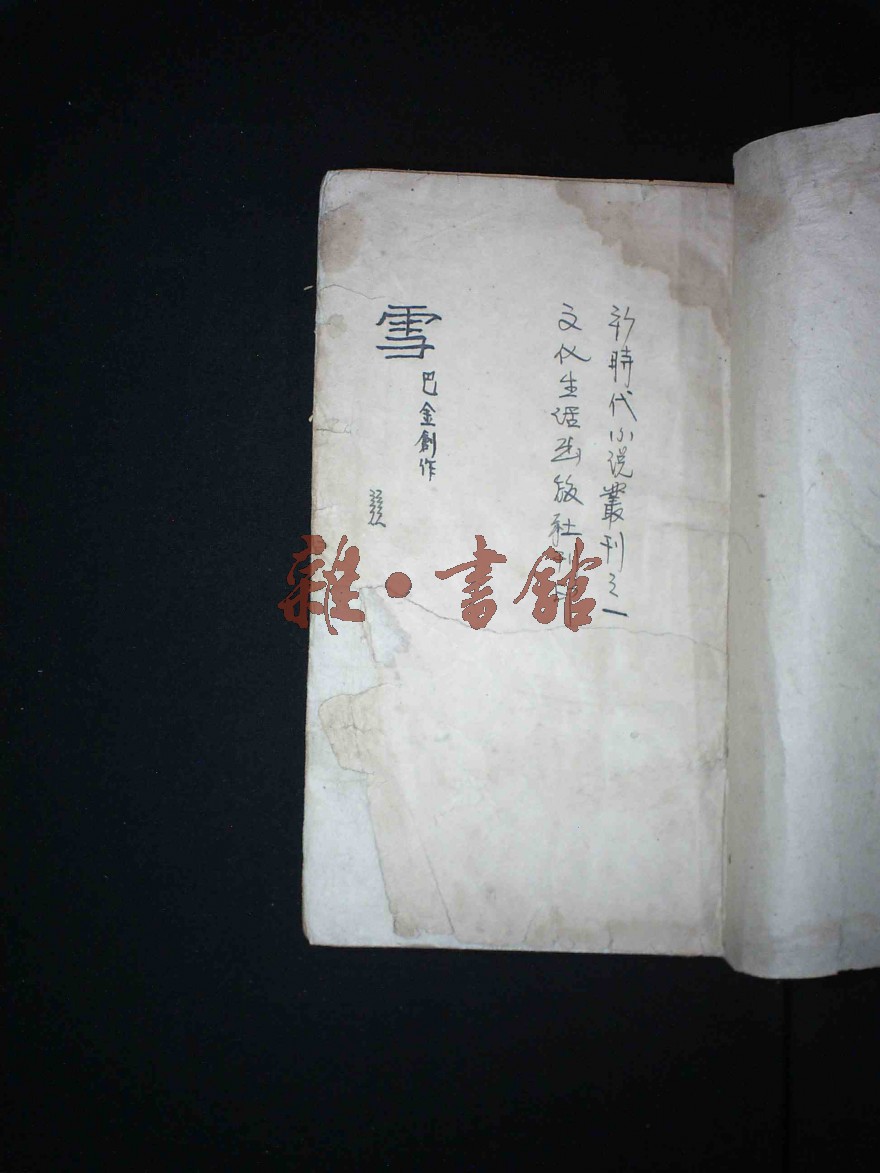 新時代小说叢刊之一
文化生活出版社刊
雪
巴金創作
雜·書館